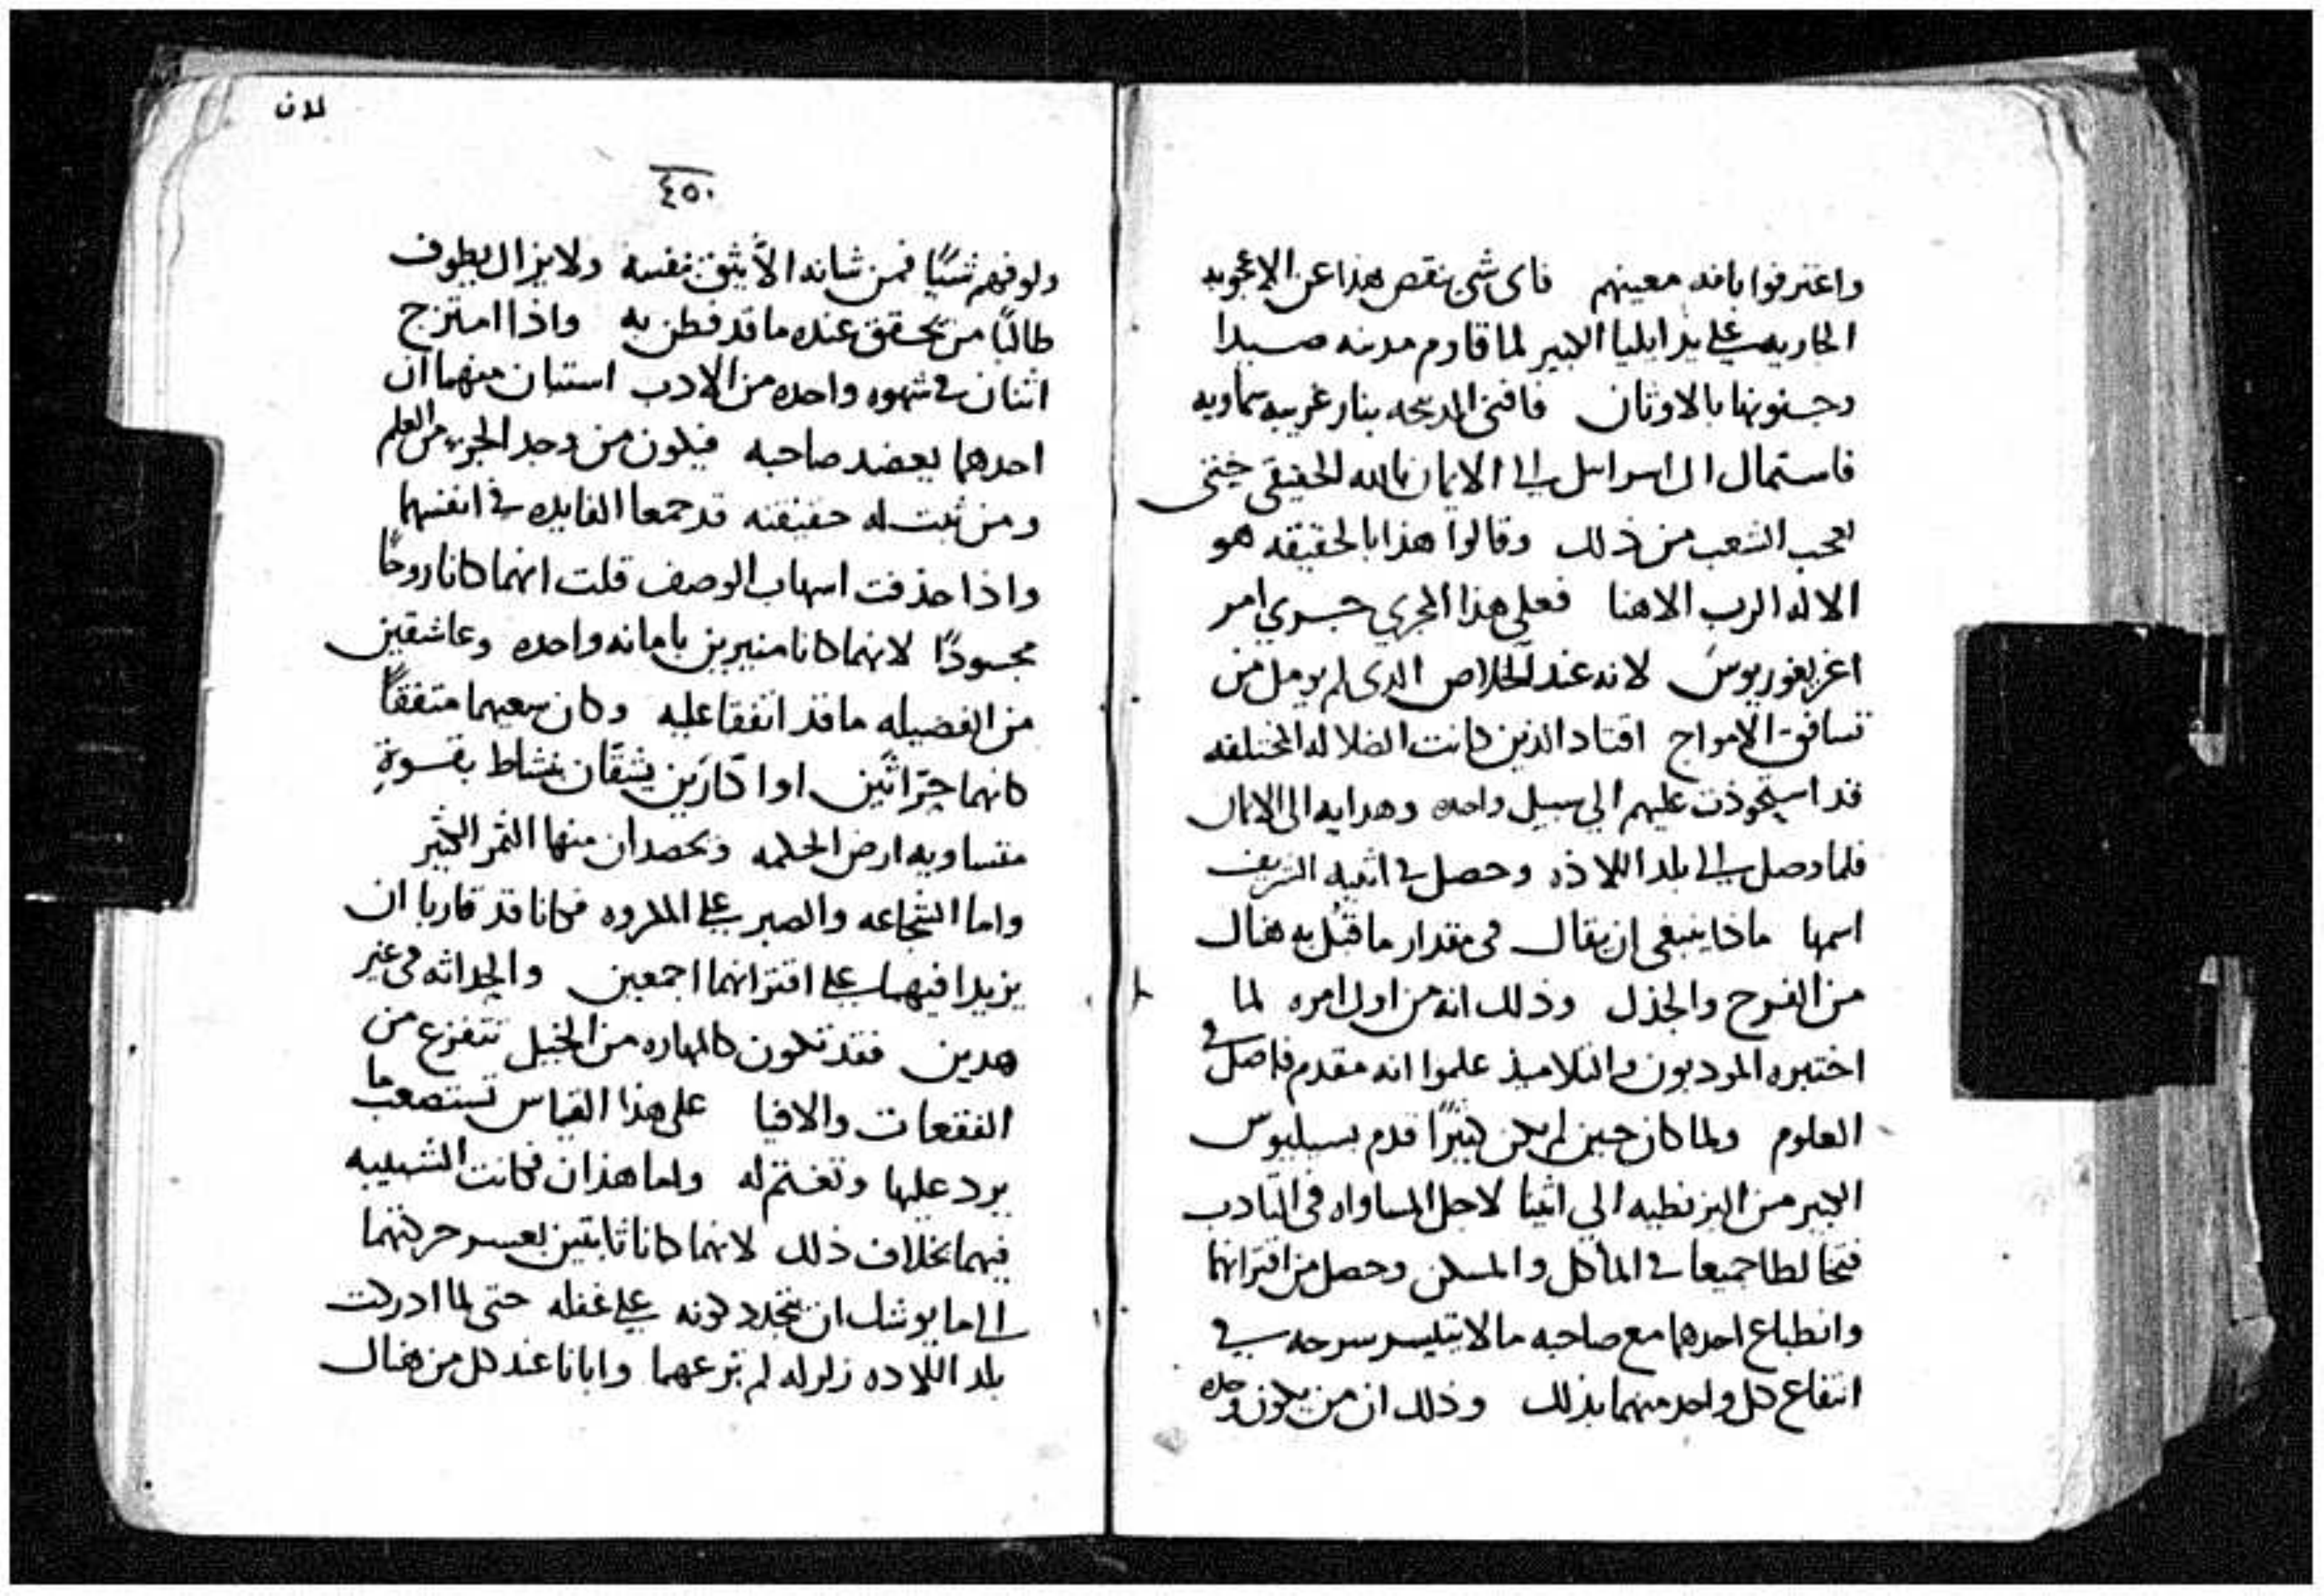 واعترفوا بانه معينهم فاى شى ينقص هذا عن الاعجوبه
الجاريه على يد ايليا الكبير لما قاوم مدينه صيدا
وجنونها بالاوثان فافنى المدبحه بنار غريبه سماويه
فاستمال ال اسراييل الى الايمان بالله الحقيقى حتى
تعجب الشعب من ذلك وقالوا هذا بالحقيقه هو
الاله الرب الاهنا فعلى هذا المجري جري امر
اغريغوريوس لانه عند الخلاص الدى لم يومل من
تسافق الامواج اقتاد الذين كانت الضلاله المختلفه
قد استحوذت عليهم الي سبيل واحده وهدايه الى الايمان
فلما وصل الى بلد اللاذه وحصل في اثينه الشريف
اسمها ماذا ينبغى ان يقال فى مقدار ما قبل به هناك
من الفرح والجذل وذلك انه من اول امره لما
اختبره المودبون والتلاميذ علموا انه مقدم فاضل في
العلوم ولما كان حين لم يكن كثيرًا قدم بسيليوس
الكبير من البزنطيه الي اثينا لاجل المساواه فى التادب
فتخالطا جميعا في الماكل والمسكن وحصل من اقترانهما
وانطباع احدهما مع صاحبه ما لا يتيسر سرحه في
انتفاع كل واحد منهما بذلك وذلك ان من يكون وحده
لان
٤٥٠
ولو فهم شيًا فمن شانه الاّ يثق بنفسه ولا يزال يطوف
طالبًا من تحقق عنده ما قد فطن به واذا امتزج
اثنان في شهوه واحده من الادب استبان منهما ان
احدهما يعضد صاحبه فيكون من وجد الجزء من العلم
ومن ثبت له حقيقته قد جمعا الفايده في انفسهما
واذا حذفت اسهاب الوصف قلت انهما كانا روحًا
محسودًا لانهما كانا منيرين بامانه واحده وعاشقين
من الفضيله ما قد اتفقا عليه وكان سعيهما متفقاً
كانهما حرّاثَين او اكّارَين يشقّان بنشاط بقسوةٍ
متساويه ارض الحكمه ويحصدان منها الثمر الكثير
واما الشجاعه والصبر على المكروه فكانا قد قاربا ان
يزيدا فيهما على اقترانهما اجمعين والحداثه فى غير
هدين فقد تكون كالمهاره من الخيل تتفزع من
الفقعات والافيا على هذا القياس تستصعب ما
يرد عليها وتغتم له واما هذان فكانت الشبيبه
فيهما بخلاف ذلك لانهما كانا ثابتين بعسر حركتهما
الى ما يوشك ان يتجدد كونه على غفله حتى لما ادركت
بلد اللاده زلزله لم ترعهما وابانا عند كل من هناك